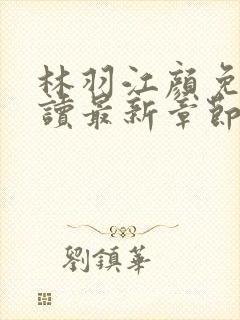 林羽江顏免
讀最新章節
劉鎮華